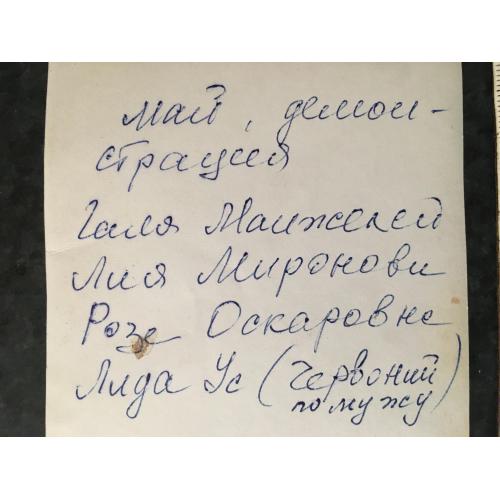 май, демон-
страция
Галя Манжелей
Лия Миронови
Роза Оскаровна
Лида Ус (Червоний
по мужу)